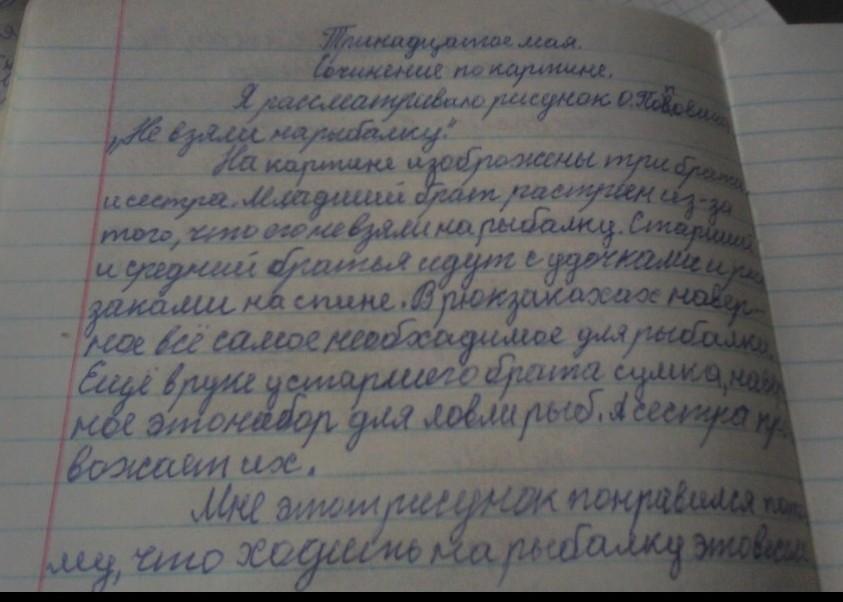 Тринадцатое мая.
Сочинение по картине.
Я рассматриваю рисунок О.
„Не взяли на рыбалку."
На картине изоброжены три брата
и сестра. Младший брат растроен из-за
того, что его не взяли на рыбалку. Старший
и средний братья идут с удочками и
заками на спине. В рюкзакахах навер-
ное всё самое необхадимое для рыбалки.
Ещё в руке у старшего брата сумка, навер
ное это набор для ловли рыб. А сестра пр
вожает их.
Мне этот рисунок понравился пото
му, что хадить на рыбалку это весело